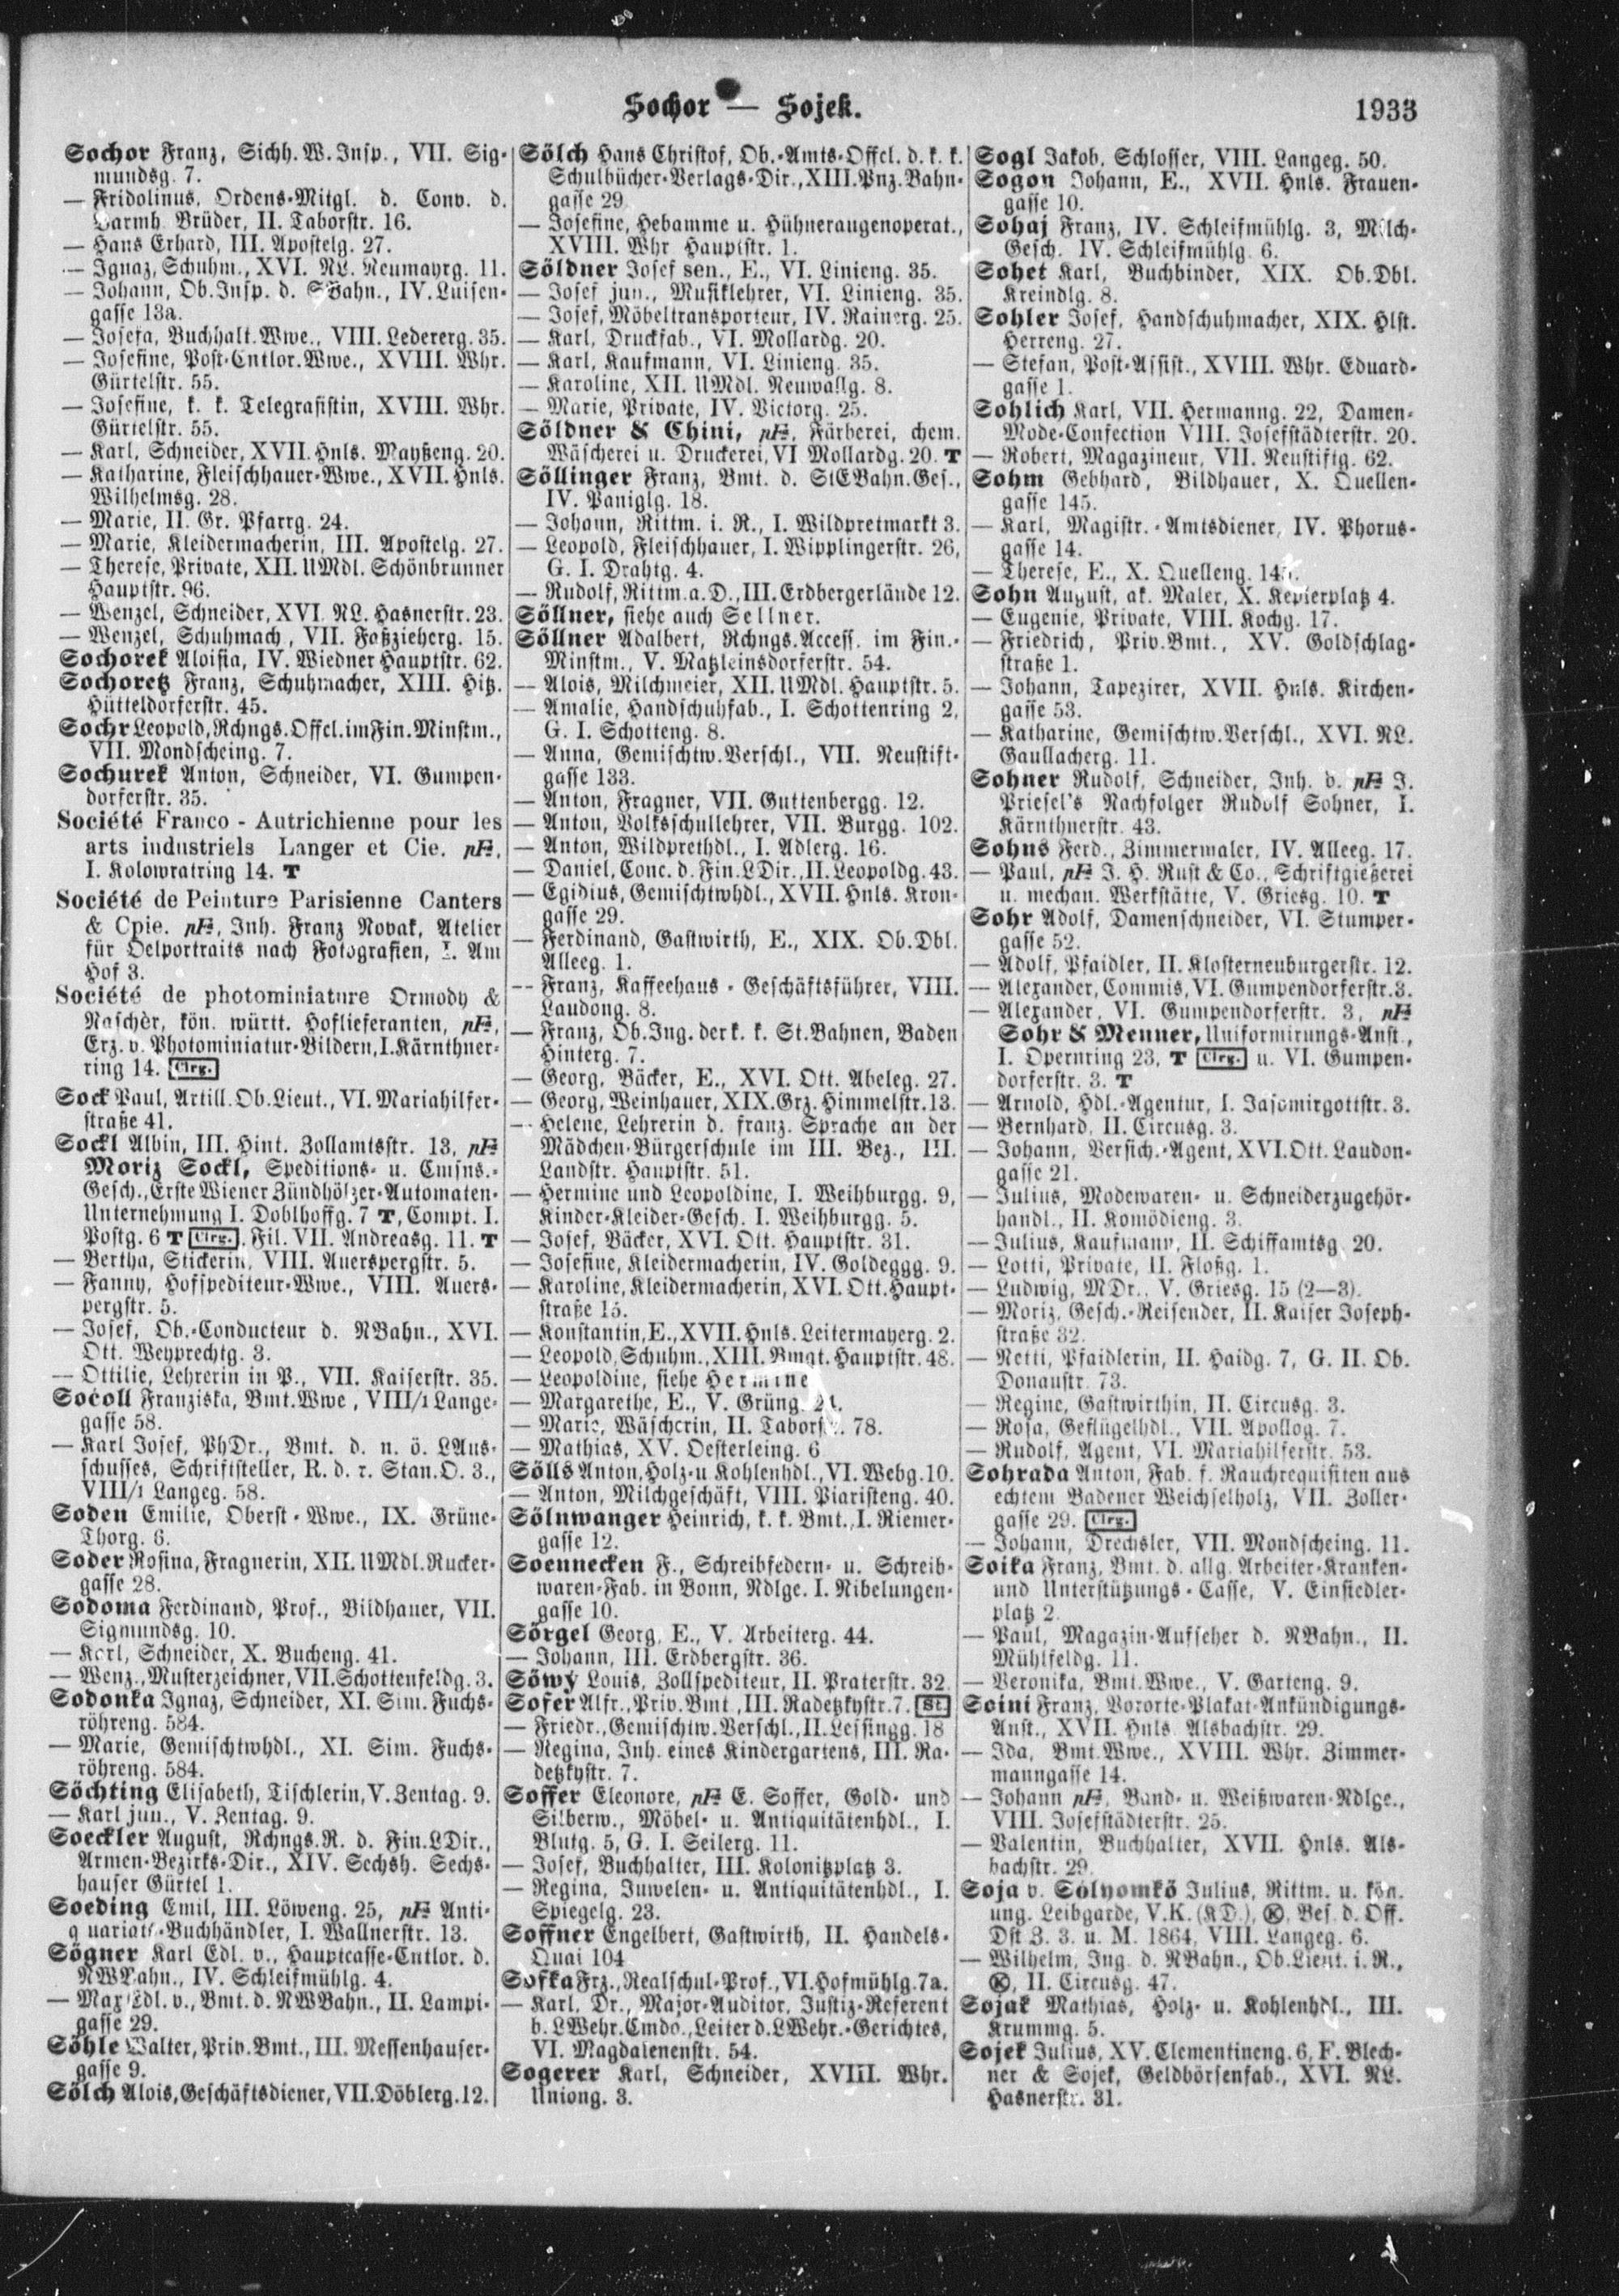 Sochor — Sojek.
1933
Sochor Franz, Sichh. W. Insp., VII. Sig-
mundsg. 7.
— Fridolinus, Ordens-Mitgl. d. Conv. d.
Barmh. Brüder, II. Taborstr. 16.
— Hans Erhard, III. Apostelg. 27.
— Ignaz, Schuhm., XVI. NL. Neumayrg. 11.
— Johann, Ob. Insp. d. SBahn., IV. Luisen-
gasse 13a.
— Josefa, Buchhalt. Wwe., VIII. Ledererg. 35.
— Josefine, Post-Cntlor. Wwe., XVIII. Whr.
Gürtelstr. 55.
— Josefine, k. k. Telegrafistin, XVIII. Whr.
Gürtelstr. 55.
— Karl, Schneider, XVII. Hnls. Mayßeng. 20.
— Katharine, Fleischhauer-Wwe., XVII. Hnls.
Wilhelmsg. 28.
— Marie, II. Gr. Pfarrg. 24.
— Marie, Kleidermacherin, III. Apostelg. 27.
— Therese, Private, XII. UMdl. Schönbrunner
Hauptstr. 96.
— Wenzel, Schneider, XVI. NL. Hasnerstr. 23.
— Wenzel, Schuhmach., VII. Faßzieherg. 15.
Sochorek Aloisia, IV. Wiedner Hauptstr. 62.
Sochoretz Franz, Schuhmacher, XIII. Hitz.
Hütteldorferstr. 45.
Sochr Leopold, Rchngs. Offcl. im Fin. Minstm.,
VII. Mondscheing. 7.
Sochurek Anton, Schneider, VI. Gumpen-
dorferstr. 35.
Société Franco - Autrichienne pour les
arts industriels Langer et Cie. pF,
I. Kolowratring 14. T
Société de Peinture Parisienne Canters
& Cpie. pF, Inh. Franz Novak, Atelier
für Oelportraits nach Fotografien, I. Am
Hof 3.
Société de photominiature Ormody &
Naschèr, kön. württ. Hoflieferanten, pF,
Erz. v. Photominiatur-Bildern, I. Kärnthner-
ring 14. Clrg.
Sock Paul, Artill. Ob. Lieut., VI. Mariahilfer-
straße 41.
Sockl Albin, III. Hint. Zollamtsstr. 13, pF
Moriz Sockl, Speditions- u. Cmsns.-
Gesch., Erste Wiener Zündhölzer-Automaten-
Unternehmung I. Doblhoffg. 7 T, Compt. I.
Postg. 6 T Clrg., Fil. VII. Andreasg. 11. T
— Bertha, Stickerin, VIII. Auerspergstr. 5.
— Fanny, Hofspediteur-Wwe., VIII. Auers-
pergstr. 5.
— Josef, Ob.-Conducteur d. NBahn., XVI.
Ott. Weyprechtg. 3.
— Ottilie, Lehrerin in P., VII. Kaiserstr. 35.
Socoll Franziska, Bmt. Wwe., VIII/1 Lange-
gasse 58.
— Karl Josef, PhDr., Bmt. d. n. ö. LAus-
schusses, Schriftsteller, R. d. r. Stan. O. 3.,
VIII/1 Langeg. 58.
Soden Emilie, Oberst-Wwe., IX. Grüne-
Thorg. 6.
Soder Rosina, Fragnerin, XII. UMdl. Rucker-
gasse 28.
Sodoma Ferdinand, Prof., Bildhauer, VII.
Sigmundsg. 10.
— Karl, Schneider, X. Bucheng. 41.
— Wenz., Musterzeichner, VII. Schottenfeldg. 3.
Sodonka Ignaz, Schneider, XI. Sim. Fuchs-
röhreng. 584.
— Marie, Gemischtwhdl., XI. Sim. Fuchs-
röhreng. 584.
Söchting Elisabeth, Tischlerin, V. Zentag. 9.
— Karl jun., V. Zentag. 9.
Soeckler August, Rchngs. R. d. Fin. LDir.,
Armen-Bezirks-Dir., XIV. Sechsh. Sechs-
hauser Gürtel 1.
Soeding Emil, III. Löweng. 25, pF Anti-
quariats-Buchhändler, I. Wallnerstr. 13.
Sögner Karl Edl. v., Hauptcasse-Cntlor. d.
NWBahn., IV. Schleifmühlg. 4.
— Max Edl. v., Bmt. d. NWBahn., II. Lampi-
gasse 29.
Söhle Walter, Priv. Bmt., III. Messenhauser-
gasse 9.
Sölch Alois, Geschäftsdiener, VII. Döblerg. 12.
Sölch Hans Christof, Ob.-Amts-Offcl. d. k. k.
Schulbücher-Verlags-Dir., XIII. Pnz. Bahn-
gasse 29.
— Josefine, Hebamme u. Hühneraugenoperat.,
XVIII. Whr. Hauptstr. 1.
Söldner Josef sen., E., VI. Linieng. 35.
— Josef jun., Musiklehrer, VI. Linieng. 35.
— Josef, Möbeltransporteur, IV. Rainerg. 25.
— Karl, Druckfab., VI. Mollardg. 20.
— Karl, Kaufmann, VI. Linieng. 35.
— Karoline, XII. UMdl. Neuwallg. 8.
— Marie, Private, IV. Victorg. 25.
Söldner & Chini, pF, Färberei, chem.
Wäscherei u. Druckerei, VI Mollardg. 20. T
Söllinger Franz, Bmt. d. StEBahn. Ges.,
IV. Paniglg. 18.
— Johann, Rittm. i. R., I. Wildpretmarkt 3.
— Leopold, Fleischhauer, I. Wipplingerstr. 26,
G. I. Drahtg. 4.
— Rudolf, Rittm. a. D., III. Erdbergerlände 12.
Söllner, siehe auch Sellner.
Söllner Adalbert, Rchngs. Access. im Fin.-
Minstm., V. Matzleinsdorferstr. 54.
— Alois, Milchmeier, XII. UMdl. Hauptstr. 5.
— Amalie, Handschuhfab., I. Schottenring 2,
G. I. Schotteng. 8.
— Anna, Gemischtw. Verschl., VII. Neustift-
gasse 133.
— Anton, Fragner, VII. Guttenbergg. 12.
— Anton, Volksschullehrer, VII. Burgg. 102.
— Anton, Wildprethdl., I. Adlerg. 16.
— Daniel, Conc. d. Fin. LDir., II. Leopoldg. 43.
— Egidius, Gemischtwhdl., XVII. Hnls. Kron-
gasse 29.
— Ferdinand, Gastwirth, E., XIX. Ob. Dbl.
Alleeg. 1.
— Franz, Kaffeehaus-Geschäftsführer, VIII.
Laudong. 8.
— Franz, Ob. Ing. der k. k. St. Bahnen, Baden
Hinterg. 7.
— Georg, Bäcker, E., XVI. Ott. Abeleg. 27.
— Georg, Weinhauer, XIX. Grz. Himmelstr. 13.
— Helene, Lehrerin d. franz. Sprache an der
Mädchen-Bürgerschule im III. Bez., III.
Landstr. Hauptstr. 51.
— Hermine und Leopoldine, I. Weihburgg. 9,
Kinder-Kleider-Gesch. I. Weihburgg. 5.
— Josef, Bäcker, XVI. Ott. Hauptstr. 31.
— Josefine, Kleidermacherin, IV. Goldeggg. 9.
— Karoline, Kleidermacherin, XVI. Ott. Haupt-
straße 15.
— Konstantin, E., XVII. Hnls. Leitermayerg. 2.
— Leopold, Schuhm., XIII. Bmgt. Hauptstr. 48.
— Leopoldine, siehe Hermine
— Margarethe, E., V. Grüng.
— Marie, Wäscherin, II. Taborstr. 78.
— Mathias, XV. Oesterleing. 6
Sölls Anton, Holz- u Kohlenhdl., VI. Webg. 10.
— Anton, Milchgeschäft, VIII. Piaristeng. 40.
Sölnwanger Heinrich, k. k. Bmt., I. Riemer-
gasse 12.
Soennecken F., Schreibfedern- u. Schreib-
waren-Fab. in Bonn, Ndlge. I. Nibelungen-
gasse 10.
Sörgel Georg, E., V. Arbeiterg. 44.
— Johann, III. Erdbergstr. 36.
Söwy Louis, Zollspediteur, II. Praterstr. 32.
Sofer Alfr., Priv. Bmt., III. Radetzkystr. 7. St.
— Friedr., Gemischtw. Verschl., II. Lessingg. 18
— Regina, Inh. eines Kindergartens, III. Ra-
detzkystr. 7.
Soffer Eleonore, pF E. Soffer, Gold- und
Silberw., Möbel- u. Antiquitätenhdl., I.
Blutg. 5, G. I. Seilerg. 11.
— Josef, Buchhalter, III. Kolonitzplatz 3.
— Regina, Juwelen- u. Antiquitätenhdl., I.
Spiegelg. 23.
Soffner Engelbert, Gastwirth, II. Handels-
Quai 104
Sofka Frz., Realschul-Prof., VI. Hofmühlg. 7a.
— Karl, Dr., Major-Auditor, Justiz-Referent
b. LWehr. Cmdo., Leiter d. LWehr.-Gerichtes,
VI. Magdalenenstr. 54.
Sogerer Karl, Schneider, XVIII. Whr.
Uniong. 3.
Sogl Jakob, Schlosser, VIII. Langeg. 50.
Sogon Johann, E., XVII. Hnls. Frauen-
gasse 10.
Sohaj Franz, IV. Schleifmühlg. 3, Milch-
Gesch. IV. Schleifmühlg. 6.
Sohet Karl, Buchbinder, XIX. Ob. Dbl.
Kreindlg. 8.
Sohler Josef, Handschuhmacher, XIX. Hlst.
Herreng. 27.
— Stefan, Post-Assist., XVIII. Whr. Eduard-
gasse 1.
Sohlich Karl, VII. Hermanng. 22, Damen-
Mode-Confection VIII. Josefstädterstr. 20.
— Robert, Magazineur, VII. Neustiftg. 62.
Sohm Gebhard, Bildhauer, X. Quellen-
gasse 145.
— Karl, Magistr.-Amtsdiener, IV. Phorus-
gasse 14.
— Therese, E., X. Quelleng. 145.
Sohn August, ak. Maler, X. Keplerplatz 4.
— Eugenie, Private, VIII. Kochg. 17.
— Friedrich, Priv. Bmt., XV. Goldschlag-
straße 1.
— Johann, Tapezirer, XVII. Hnls. Kirchen-
gasse 53.
— Katharine, Gemischtw. Verschl., XVI. NL.
Gaullacherg. 11.
Sohner Rudolf, Schneider, Inh. d. pF J.
Priesel's Nachfolger Rudolf Sohner, I.
Kärnthnerstr. 43.
Sohns Ferd., Zimmermaler, IV. Alleeg. 17.
— Paul, pF J. H. Rust & Co., Schriftgießerei
u. mechan. Werkstätte, V. Griesg. 10. T
Sohr Adolf, Damenschneider, VI. Stumper-
gasse 52.
— Adolf, Pfaidler, II. Klosterneuburgerstr. 12.
— Alexander, Commis, VI. Gumpendorferstr. 3.
— Alexander, VI. Gumpendorferstr. 3, pF
Sohr & Menner, Uniformirungs-Anst.,
I. Opernring 23, T Clrg. u. VI. Gumpen-
dorferstr. 3. T
— Arnold, Hdl.-Agentur, I. Jasomirgottstr. 3.
— Bernhard, II. Circusg. 3.
— Johann, Versich.-Agent, XVI. Ott. Laudon-
gasse 21.
— Julius, Modewaren- u. Schneiderzugehör-
handl., II. Komödieng. 3.
— Julius, Kaufmann, II. Schiffamtsg. 20.
— Lotti, Private, II. Floßg. 1.
— Ludwig, MDr., V. Griesg. 15 (2—3).
— Moriz, Gesch.-Reisender, II. Kaiser Joseph-
straße 32.
— Netti, Pfaidlerin, II. Haidg. 7, G. II. Ob.
Donaustr. 73.
— Regine, Gastwirthin, II. Circusg. 3.
— Rosa, Geflügelhdl., VII. Apollog. 7.
— Rudolf, Agent, VI. Mariahilferstr. 53.
Sohrada Anton, Fab. f. Rauchrequisiten aus
echtem Badener Weichselholz, VII. Zoller-
gasse 29. Clrg.
— Johann, Drechsler, VII. Mondscheing. 11.
Soika Franz, Bmt. d. allg. Arbeiter-Kranken-
und Unterstützungs-Casse, V. Einsiedler-
platz 2.
— Paul, Magazin-Aufseher d. NBahn., II.
Mühlfeldg. 11.
— Veronika, Bmt. Wwe., V. Garteng. 9.
Soini Franz, Vororte-Plakat-Ankündigungs-
Anst., XVII. Hnls. Alsbachstr. 29.
— Ida, Bmt. Wwe., XVIII. Whr. Zimmer-
manngasse 14.
— Johann pF, Band- u. Weißwaren-Ndlge.,
VIII. Josefstädterstr. 25.
— Valentin, Buchhalter, XVII. Hnls. Als-
bachstr. 29.
Soja v. Solyomkö Julius, Rittm. u. kön.
ung. Leibgarde, V.K. (KD.), Ⓚ, Bes. d. Off.
Dst Z. 3. u. M. 1864, VIII. Langeg. 6.
— Wilhelm, Ing. d. NBahn., Ob. Lieut. i. R.,
Ⓚ, II. Circusg. 47.
Sojak Mathias, Holz- u. Kohlenhdl., III.
Krummg. 5.
Sojek Julius, XV. Clementineng. 6, F. Blech-
ner & Sojek, Geldbörsenfab., XVI. NL.
Hasnerstr. 31.